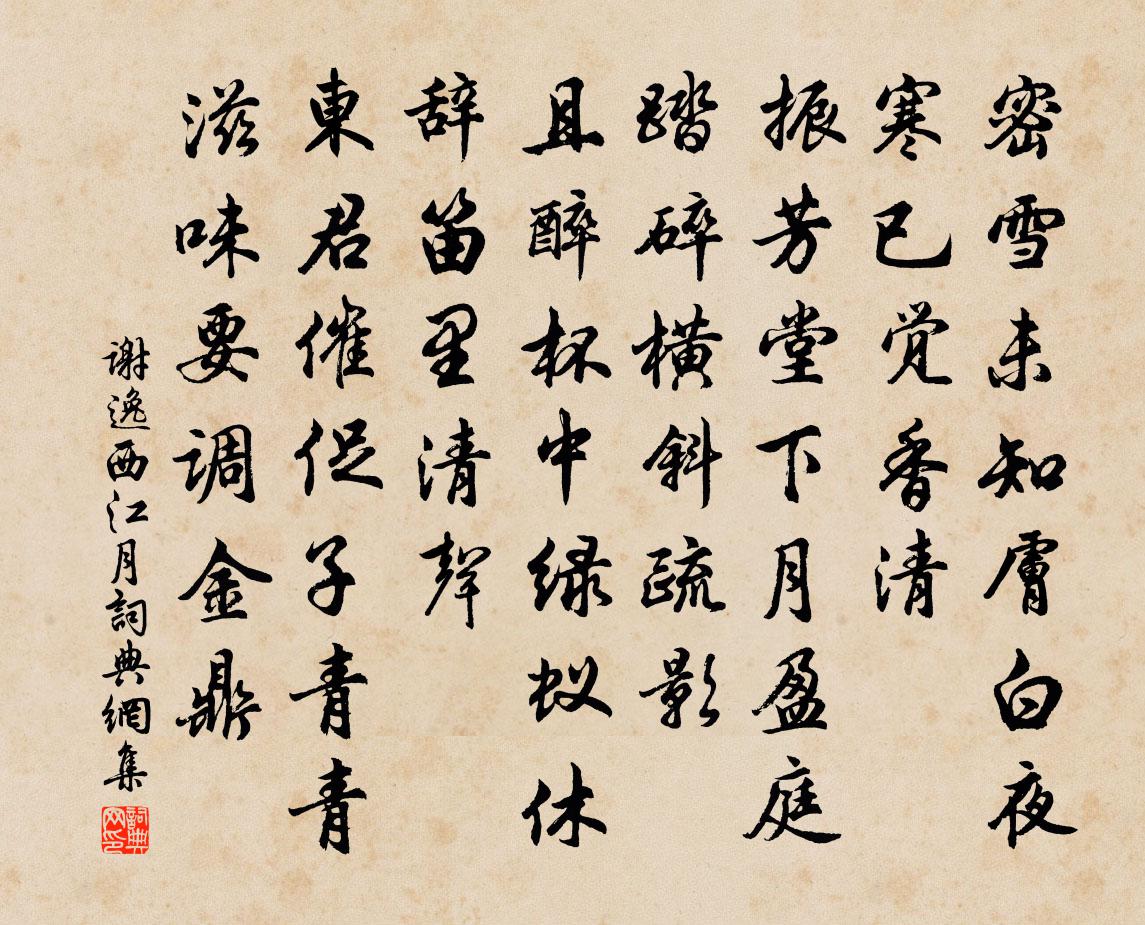 密雪未知膚白夜
寒已觉香清
振芳堂下月盈庭
踏碎横斜疏影
且醉杯中绿蚁休
辞笛里清聲
東君催促子青青
滋味要调金鼎
谢逸西江月詞典網集
詞典网印